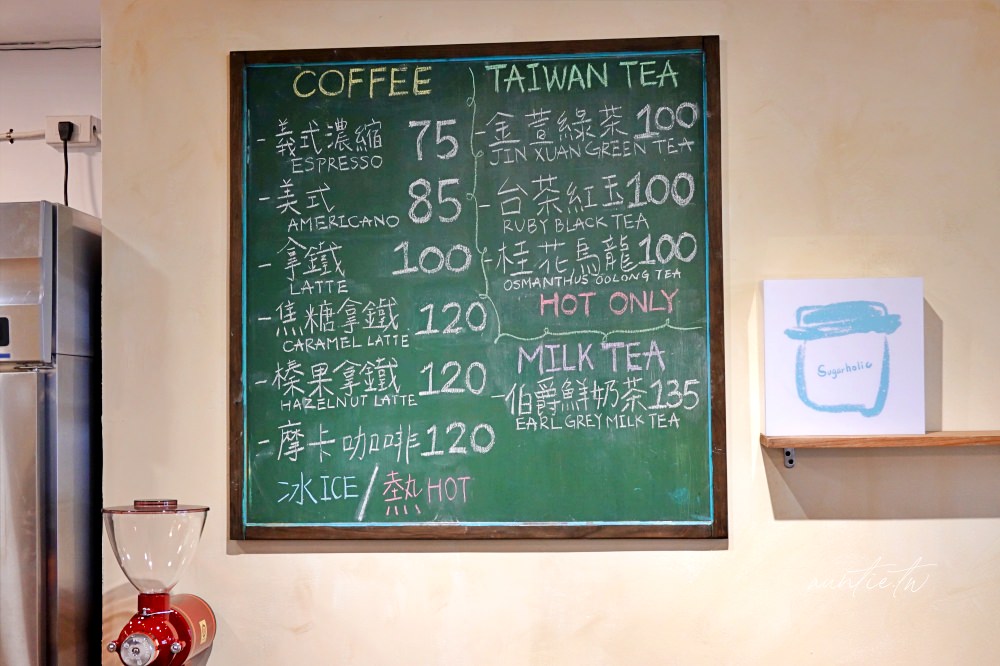 COFFEE
-義式濃縮 75
ESPRESSO
-美式 85
AMERICANO
-拿鐵 100
LATTE
-焦糖拿鐵 120
CARAMEL LATTE
-榛果拿鐵 120
HAZELNUT LATTE
-摩卡咖啡 120
冰ICE/熱HOT
TAIWAN TEA
-金萱綠茶 100
JIN XUAN GREEN TEA
-台茶紅玉 100
RUBY BLACK TEA
-桂花烏龍 100
OSMANTHUS OOLONG TEA
HOT ONLY
MILK TEA
-伯爵鮮奶茶 135
EARL GREY MILK TEA
Sugarholic
auntie.tw